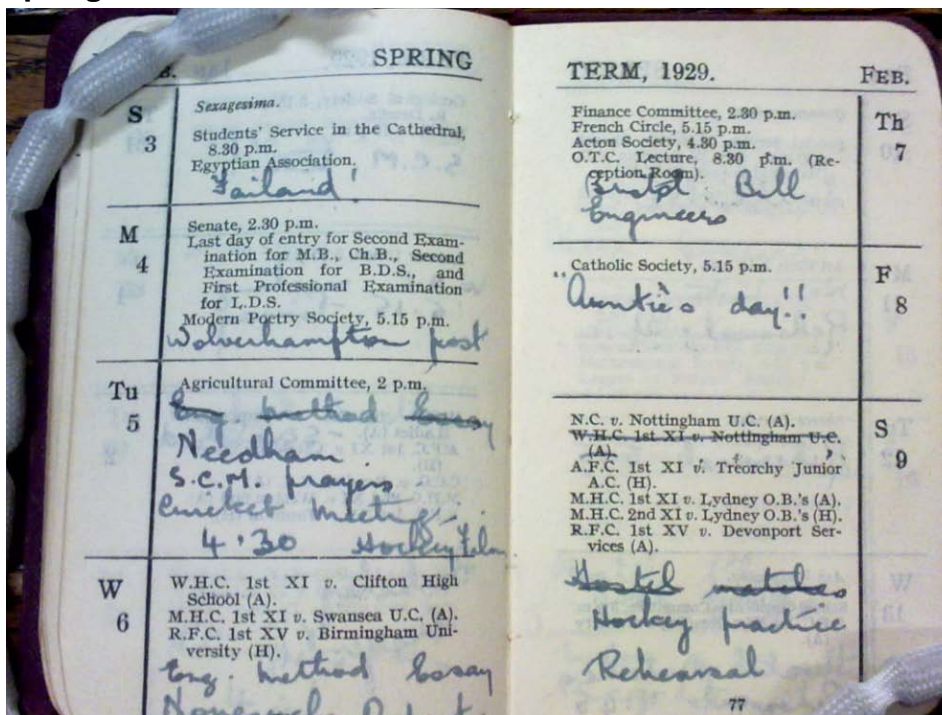 SPRING
S
3
Sexagesima.
Students' Service in the Cathedral,
8.30 p.m.
Egyptian Association.
Failand!
M
4
Senate, 2.30 p.m.
Last day of entry for Second Exam-
ination for M.B., Ch.B., Second
Examination for B.D.S., and
First Professional Examination
for L.D.S.
Modern Poetry Society, 5.15 p.m.
Wolverhampton post
Tu
5
Agricultural Committee, 2 p.m.
Eng. method Essay
Needham
S.C.M. prayers
Cricket meeting
4.30 Hockey Film
W
6
W.H.C. 1st XI v. Clifton High
School (A).
M.H.C. 1st XI v. Swansea U.C. (A).
R.F.C. 1st XV v. Birmingham Uni-
versity (H).
Eng. method Essay
TERM, 1929.
FEB.
Th
7
Finance Committee, 2.30 p.m.
French Circle, 5.15 p.m.
Acton Society, 4.30 p.m.
O.T.C. Lecture, 8.30 p.m. (Re-
ception Room).
Bristol Bill
Engineers
F
8
Catholic Society, 5.15 p.m.
Auntie's day!!
S
9
N.C. v. Nottingham U.C. (A).
W.H.C. 1st XI v. Nottingham U.C.
(A).
A.F.C. 1st XI v. Treorchy Junior
A.C. (H).
M.H.C. 1st XI v. Lydney O.B.'s (A).
M.H.C. 2nd XI v. Lydney O.B.'s (H).
R.F.C. 1st XV v. Devonport Ser-
vices (A).
Hostel matches
Hockey practice
Rehearsal
77